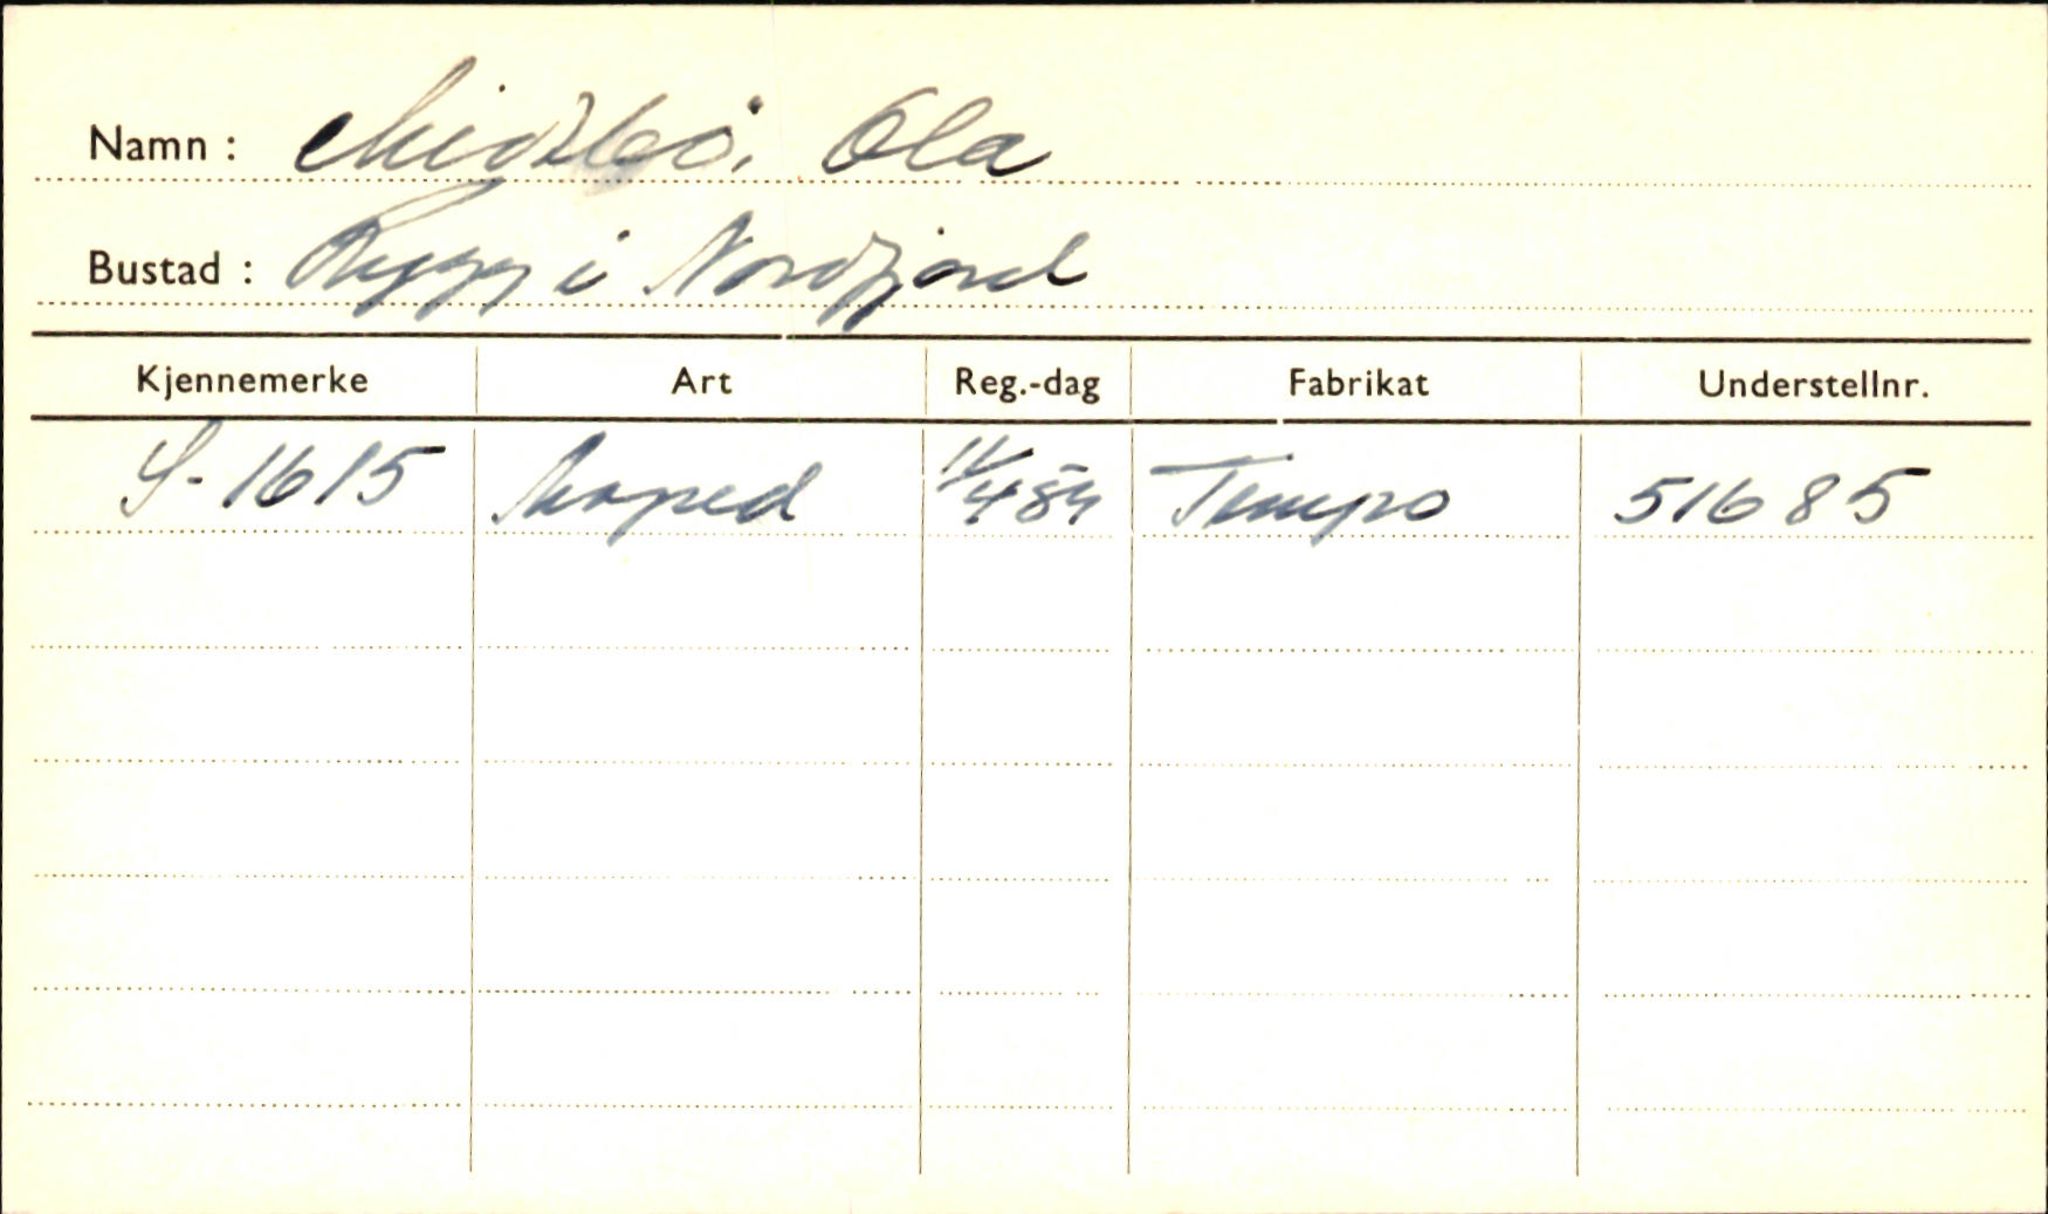 Namn : Midtbö, Ola
Bustad : Rygg i Nordfjord
Kjennemerke Art Reg.-dag Fabrikat Understellnr.
S-1615 Moped 11/4 54 Tempo 51685